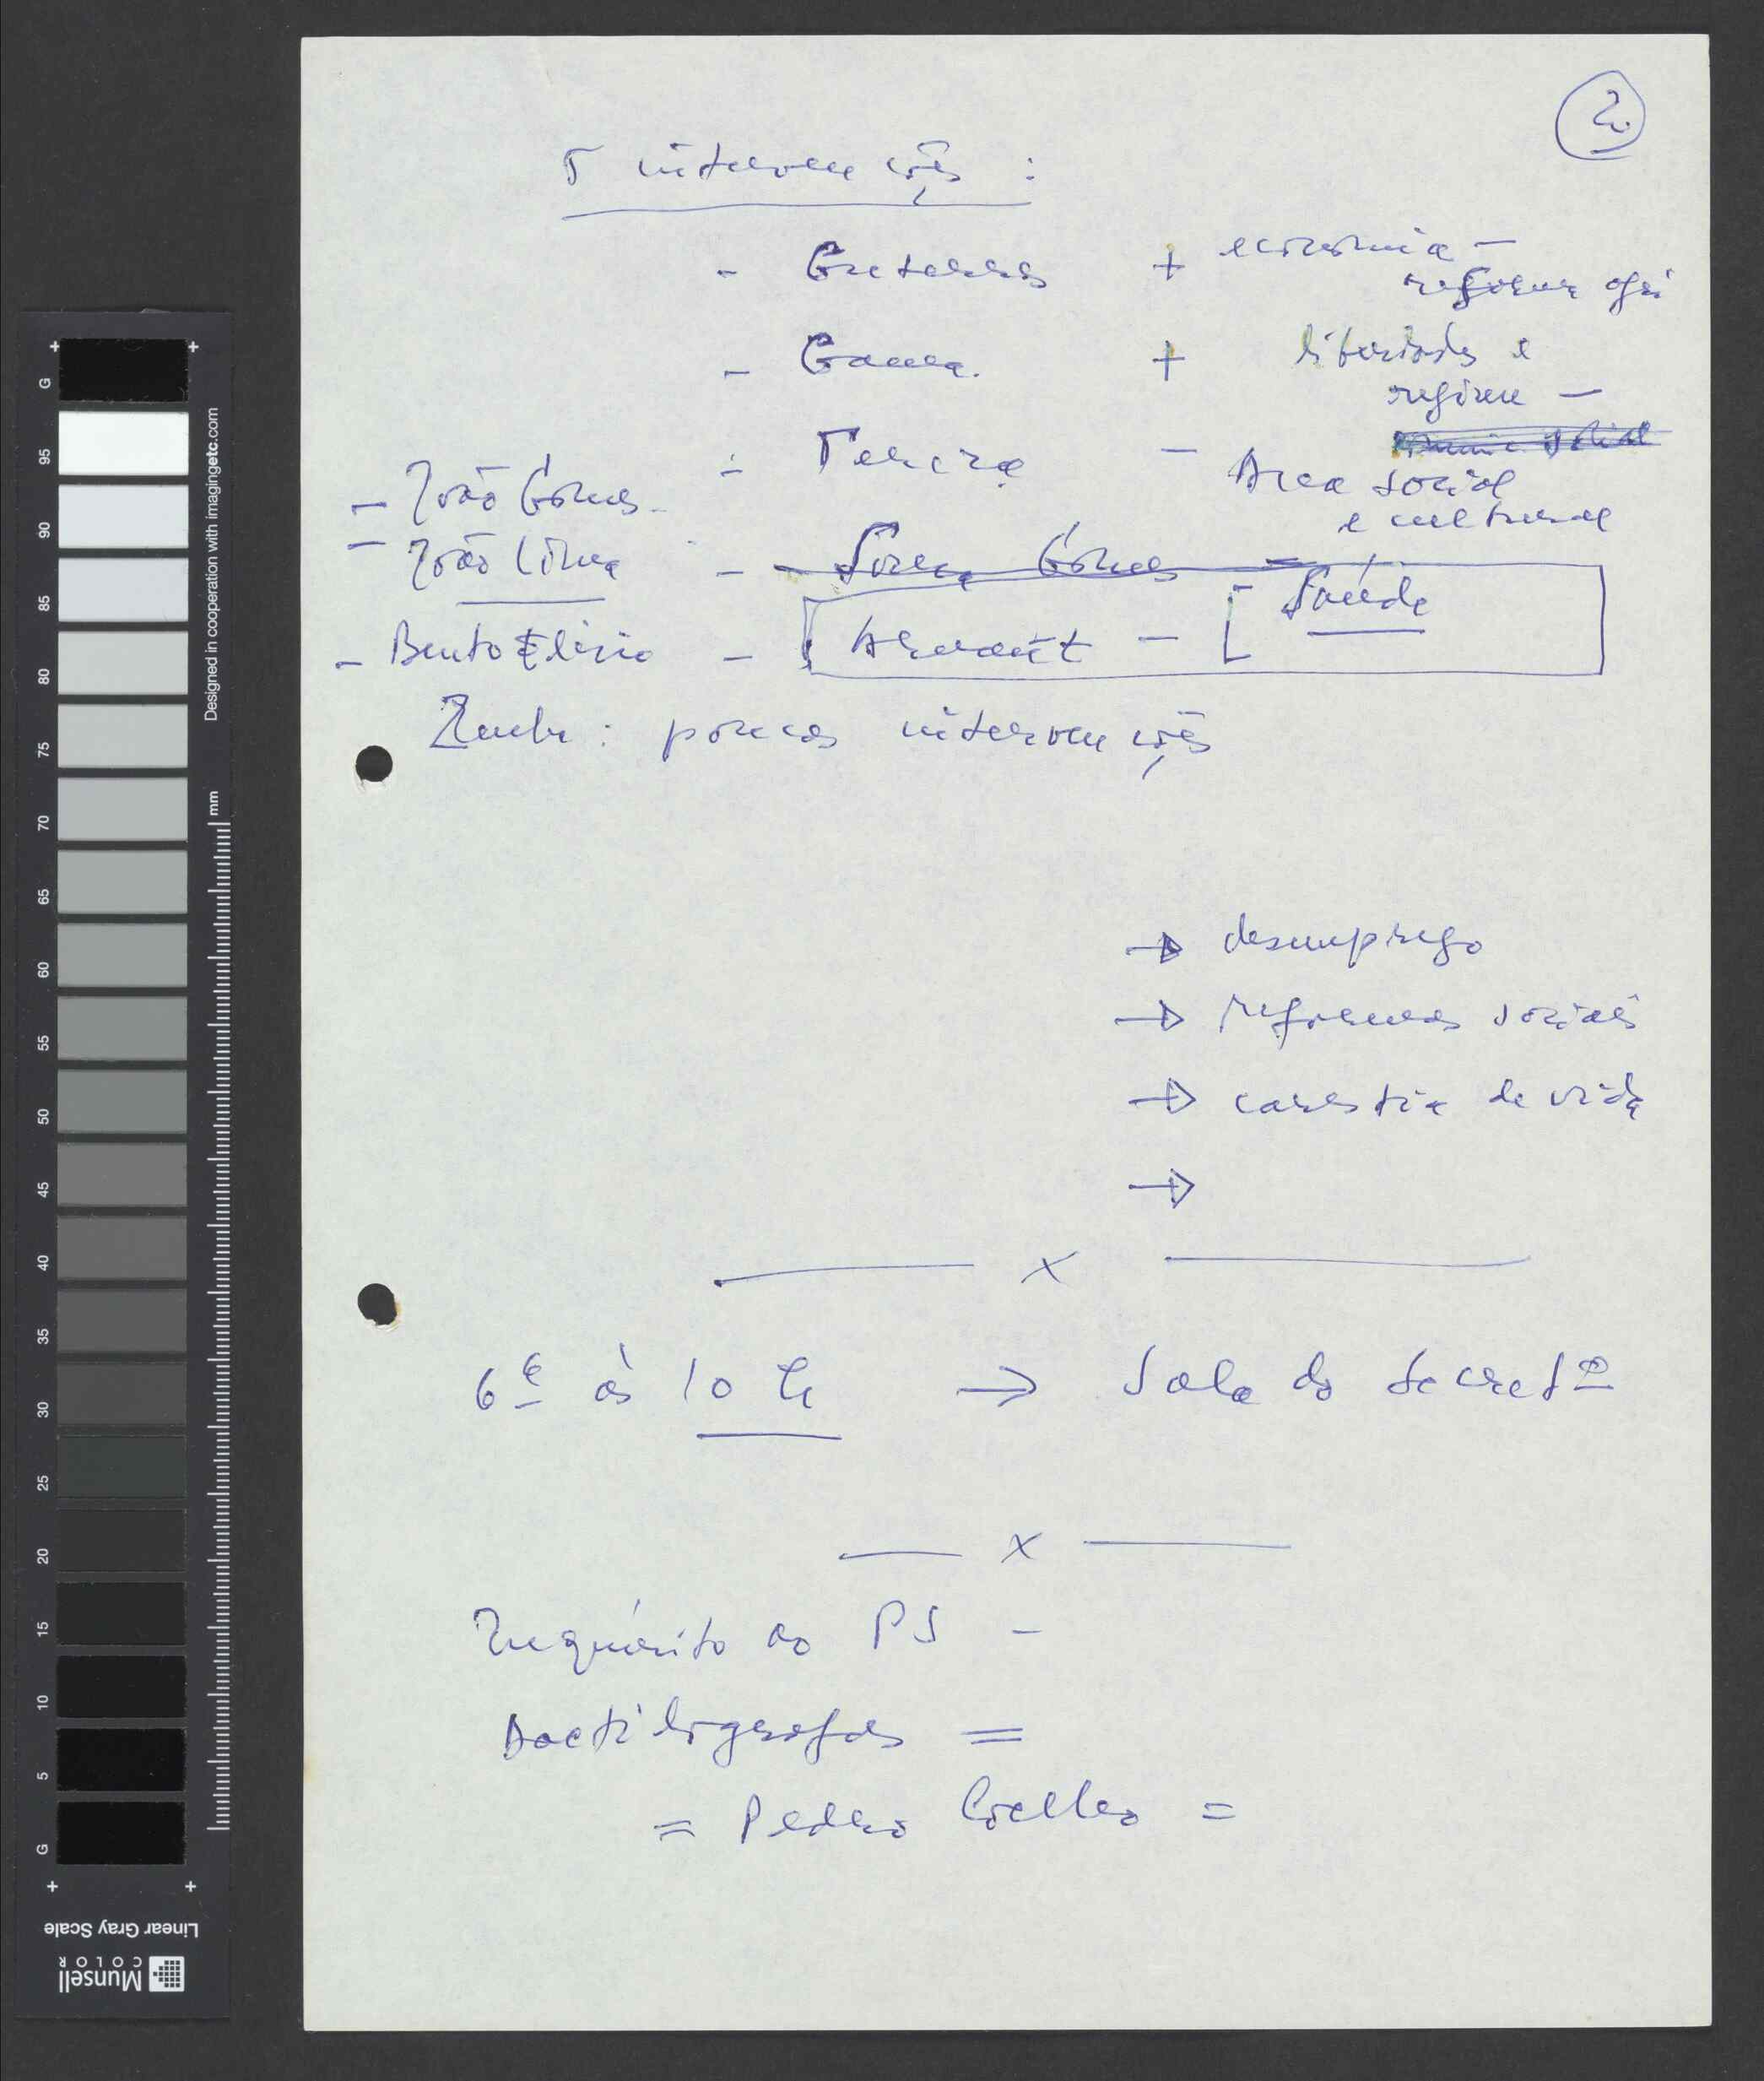 2
5 intervenções :
- Guterres + economia -
reforma agr
- Gama. + liberdades e
regime -
- Tereza - Area social
e cultural
- João Gomes -
- João Lima - Sousa Gomes -
- Bento Elísio - Arnaut - [ Saúde
Zenha : poucas intervenções
→ desemprego
→ reformas sociais
→ carestia de vida
→
x
6ª às 10 h → Sala do Secretº
x
Inquérito ao PS -
Dactilógrafas =
= Pedro Coelho =
G
95
90
85
80
75
70
65
60
55
50
45
40
35
30
25
20
15
10
5
G
mm
Designed in cooperation with imagingetc.com
Linear Gray Scale
Munsell
COLOR